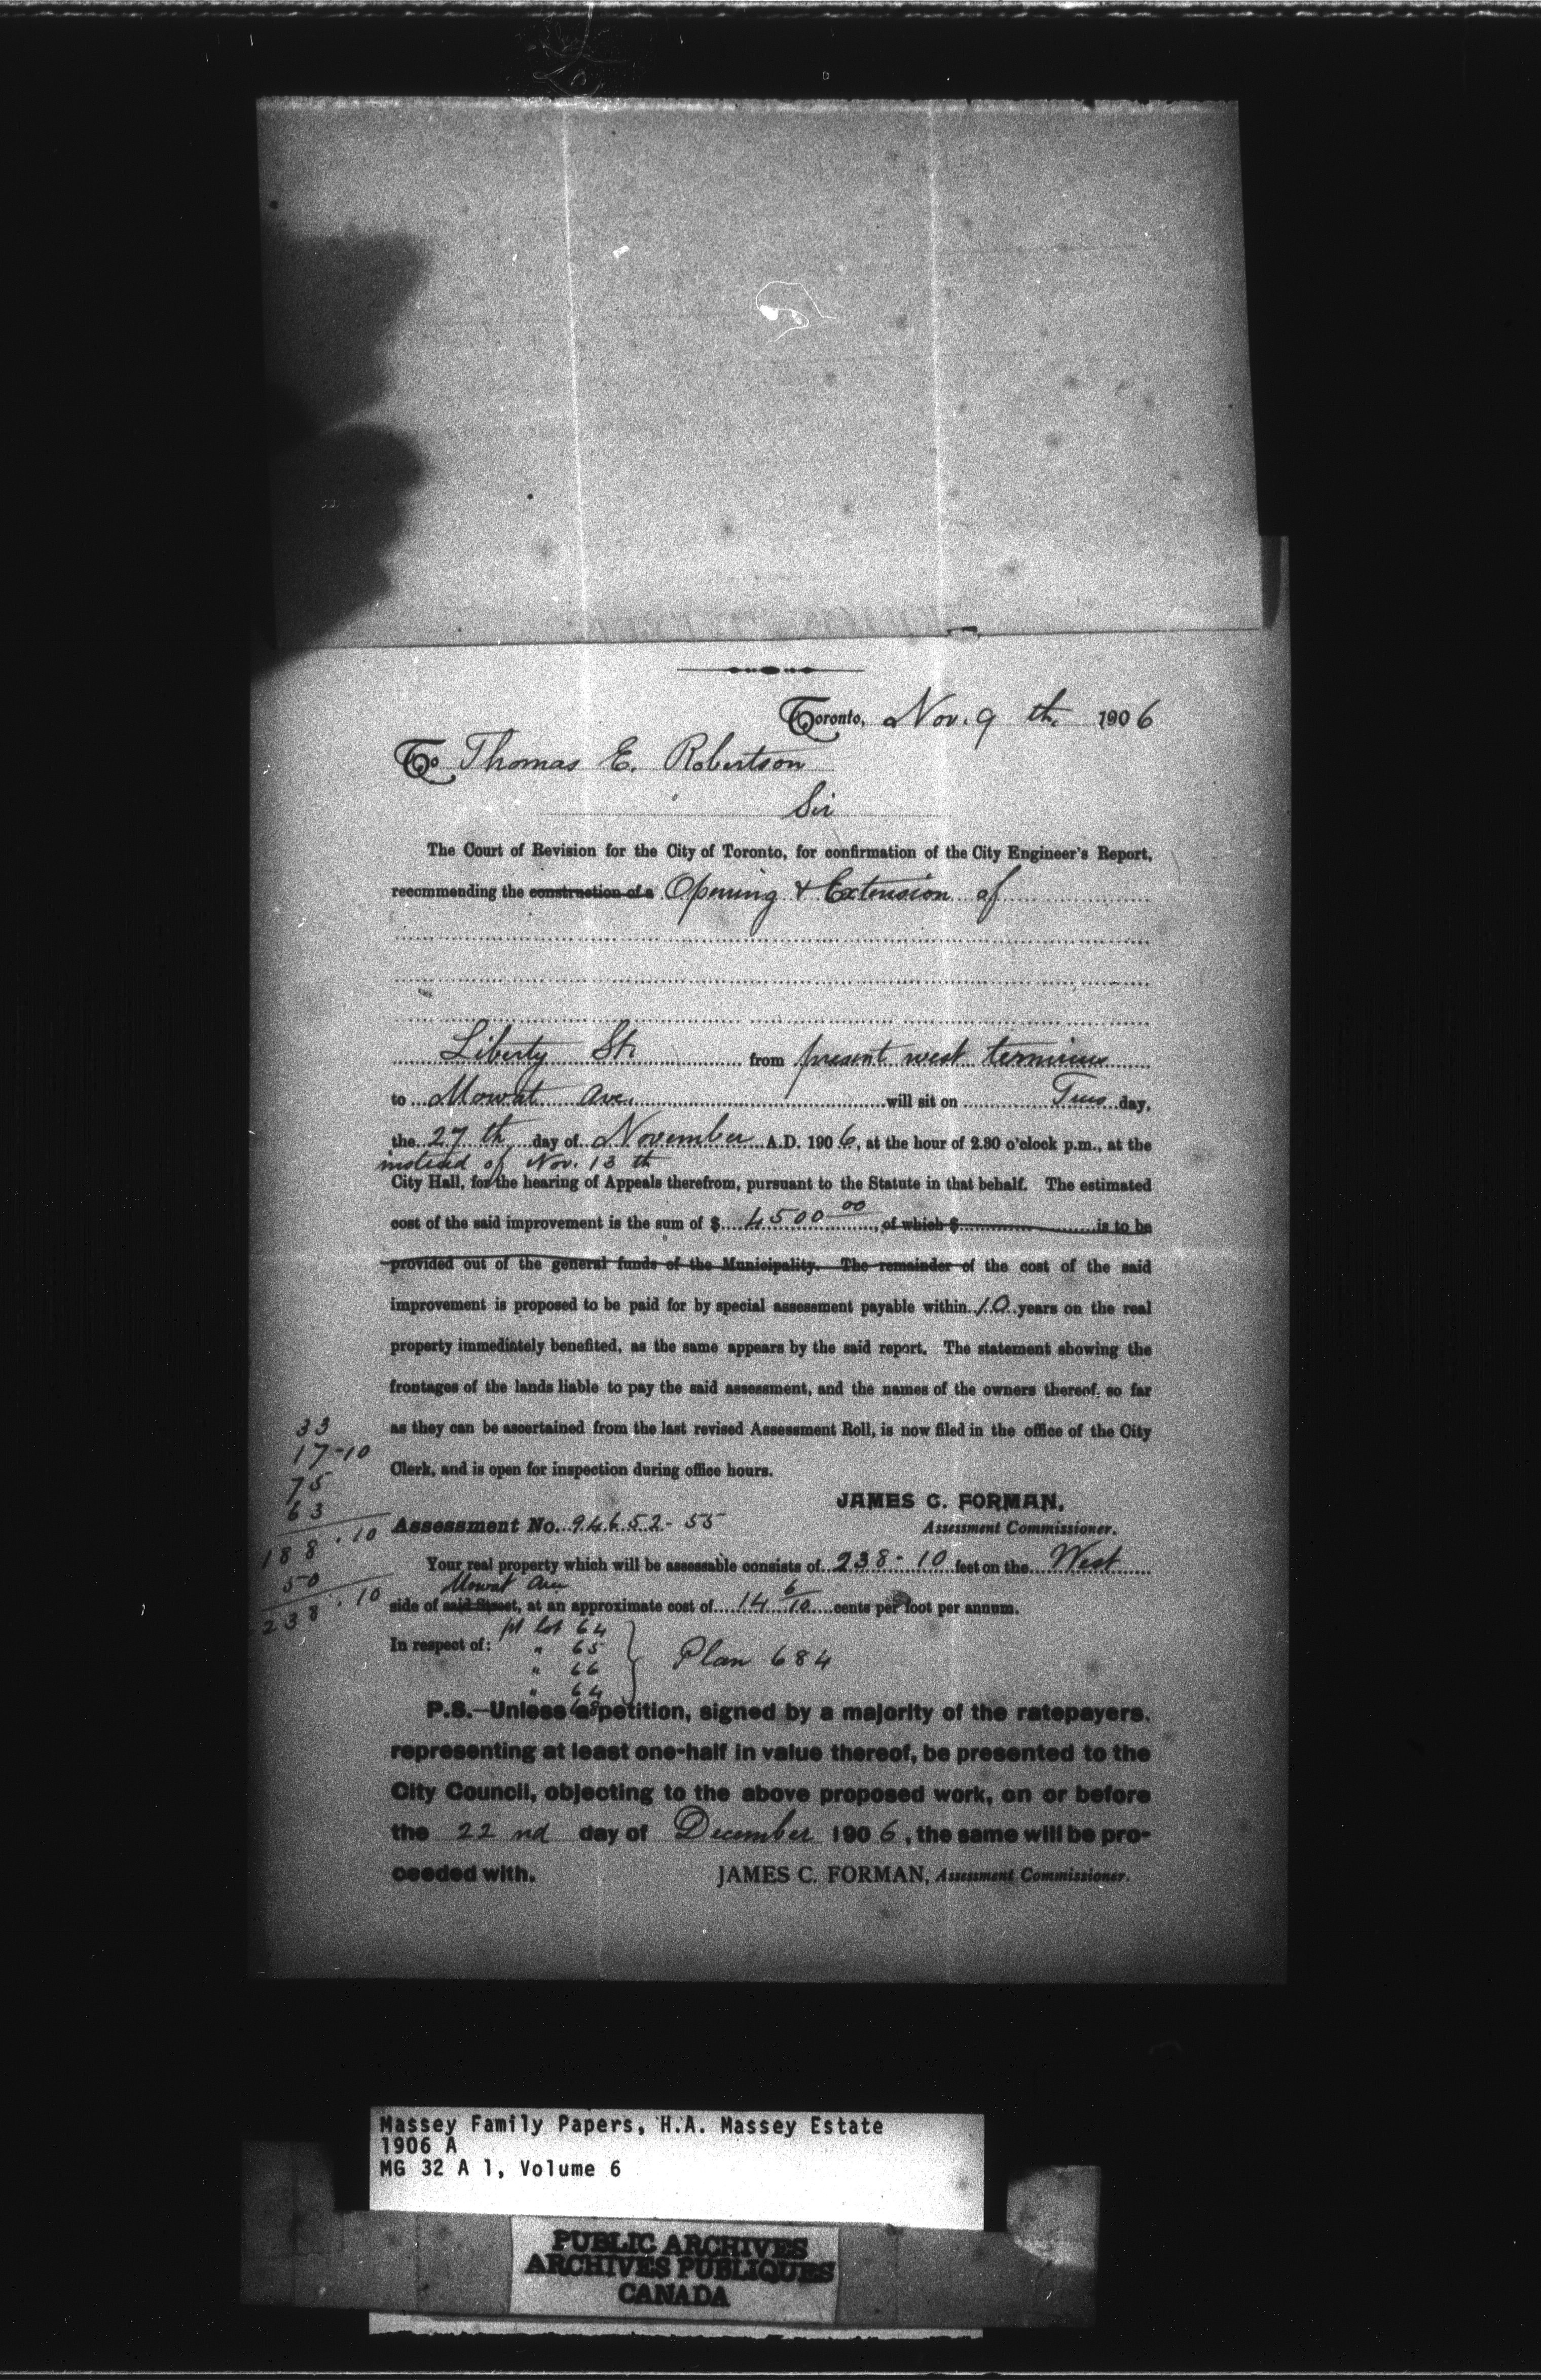 Toronto, Nov. 9 th. 1906
To Thomas E. Robertson
Sir
The Court of Revision for the City of Toronto, for confirmation of the City Engineer's Report,
recommending the construction of a Opening & Extension of
Liberty St. from present west terminus
to Mowat Ave. will sit on Tues day,
the 27 th day of November A.D. 1906, at the hour of 2.30 o'clock p.m., at the
instead of Nov. 13 th
City Hall, for the hearing of Appeals therefrom, pursuant to the Statute in that behalf. The estimated
cost of the said improvement is the sum of $ 4500 00, of which $ is to be
provided out of the general funds of the Municipality. The remainder of the cost of the said
improvement is proposed to be paid for by special assessment payable within 10 years on the real
property immediately benefited, as the same appears by the said report. The statement showing the
frontages of the lands liable to pay the said assessment, and the names of the owners thereof, so far
as they can be ascertained from the last revised Assessment Roll, is now filed in the office of the City
Clerk, and is open for inspection during office hours.
33
17-10
75
63
188.10
50
238.10
JAMES C. FORMAN,
Assessment Commissioner.
Assessment No. 94652-55
Your real property which will be assessable consists of 238-10 feet on the West
Mowat Ave
side of said Street, at an approximate cost of 14 6/10 cents per foot per annum.
In respect of: pt lot 64
" 65
" 66
" 64
Plan 684
P.S.—Unless a petition, signed by a majority of the ratepayers,
representing at least one-half in value thereof, be presented to the
City Council, objecting to the above proposed work, on or before
the 22 nd day of December 1906, the same will be pro-
ceeded with. JAMES C. FORMAN, Assessment Commissioner.
Massey Family Papers, H.A. Massey Estate
1906 A
MG 32 A 1, Volume 6
PUBLIC ARCHIVES
ARCHIVES PUBLIQUES
CANADA